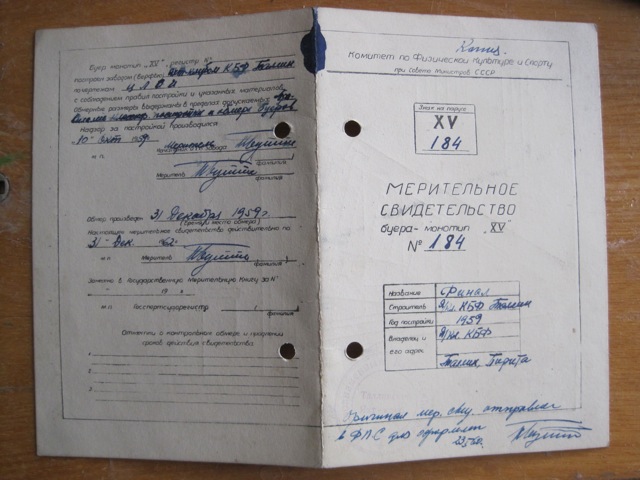 Буер монотип "XV", регистр №
построен заводом (верфью) КБФ Таллин
по чертежам ЦЛОИ
с соблюдением правил постройки и указанных материалов.
Обмерные размеры выдержаны в пределах допускаемых
постройки и обмера буеров
Надзор за постройкой производился
10 " окт 1959 Меритель
м.п. завода
фамилия
Меритель
фамилия
Обмер произведен 31 Декабря 1959 г.
(время и место обмера)
Настоящее мерительное свидетельство действительно по
31 " Дек. 1962 г.
м.п. Меритель
фамилия
Занесено в Государственную Мерительную Книгу за №
" 19 г.
м.п. Госспортсудорегистр ( )
(фамилия)
Отметки о контрольном обмере и продлении
сроков действия свидетельства
1
2
3
4
Копия.
Комитет по Физической Культуре и Спорту
при Совете Министров СССР
Знак на парусе
XV
184
МЕРИТЕЛЬНОЕ
СВИДЕТЕЛЬСТВО
буера-монотип "XV"
№ 184
Название Финал
Строитель Я/кл. КБФ Таллин
Год постройки 1959
Владелец и Я/кл. КБФ
его адрес Таллин, Пирита
Оригинал мер. свид. отправлен
в ФПС для оформлен